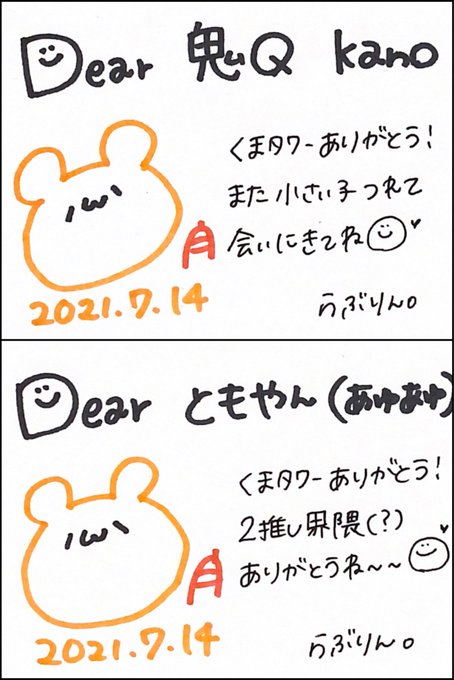 Dear 鬼Q kano
くまタワーありがとう!
また小さい子つれて
会いにきてね
2021.7.14
らぶりん。
Dear ともやん(あゆあゆ)
くまタワーありがとう!
2推し界隈(?)
ありがとうね~~
2021.7.14
らぶりん。